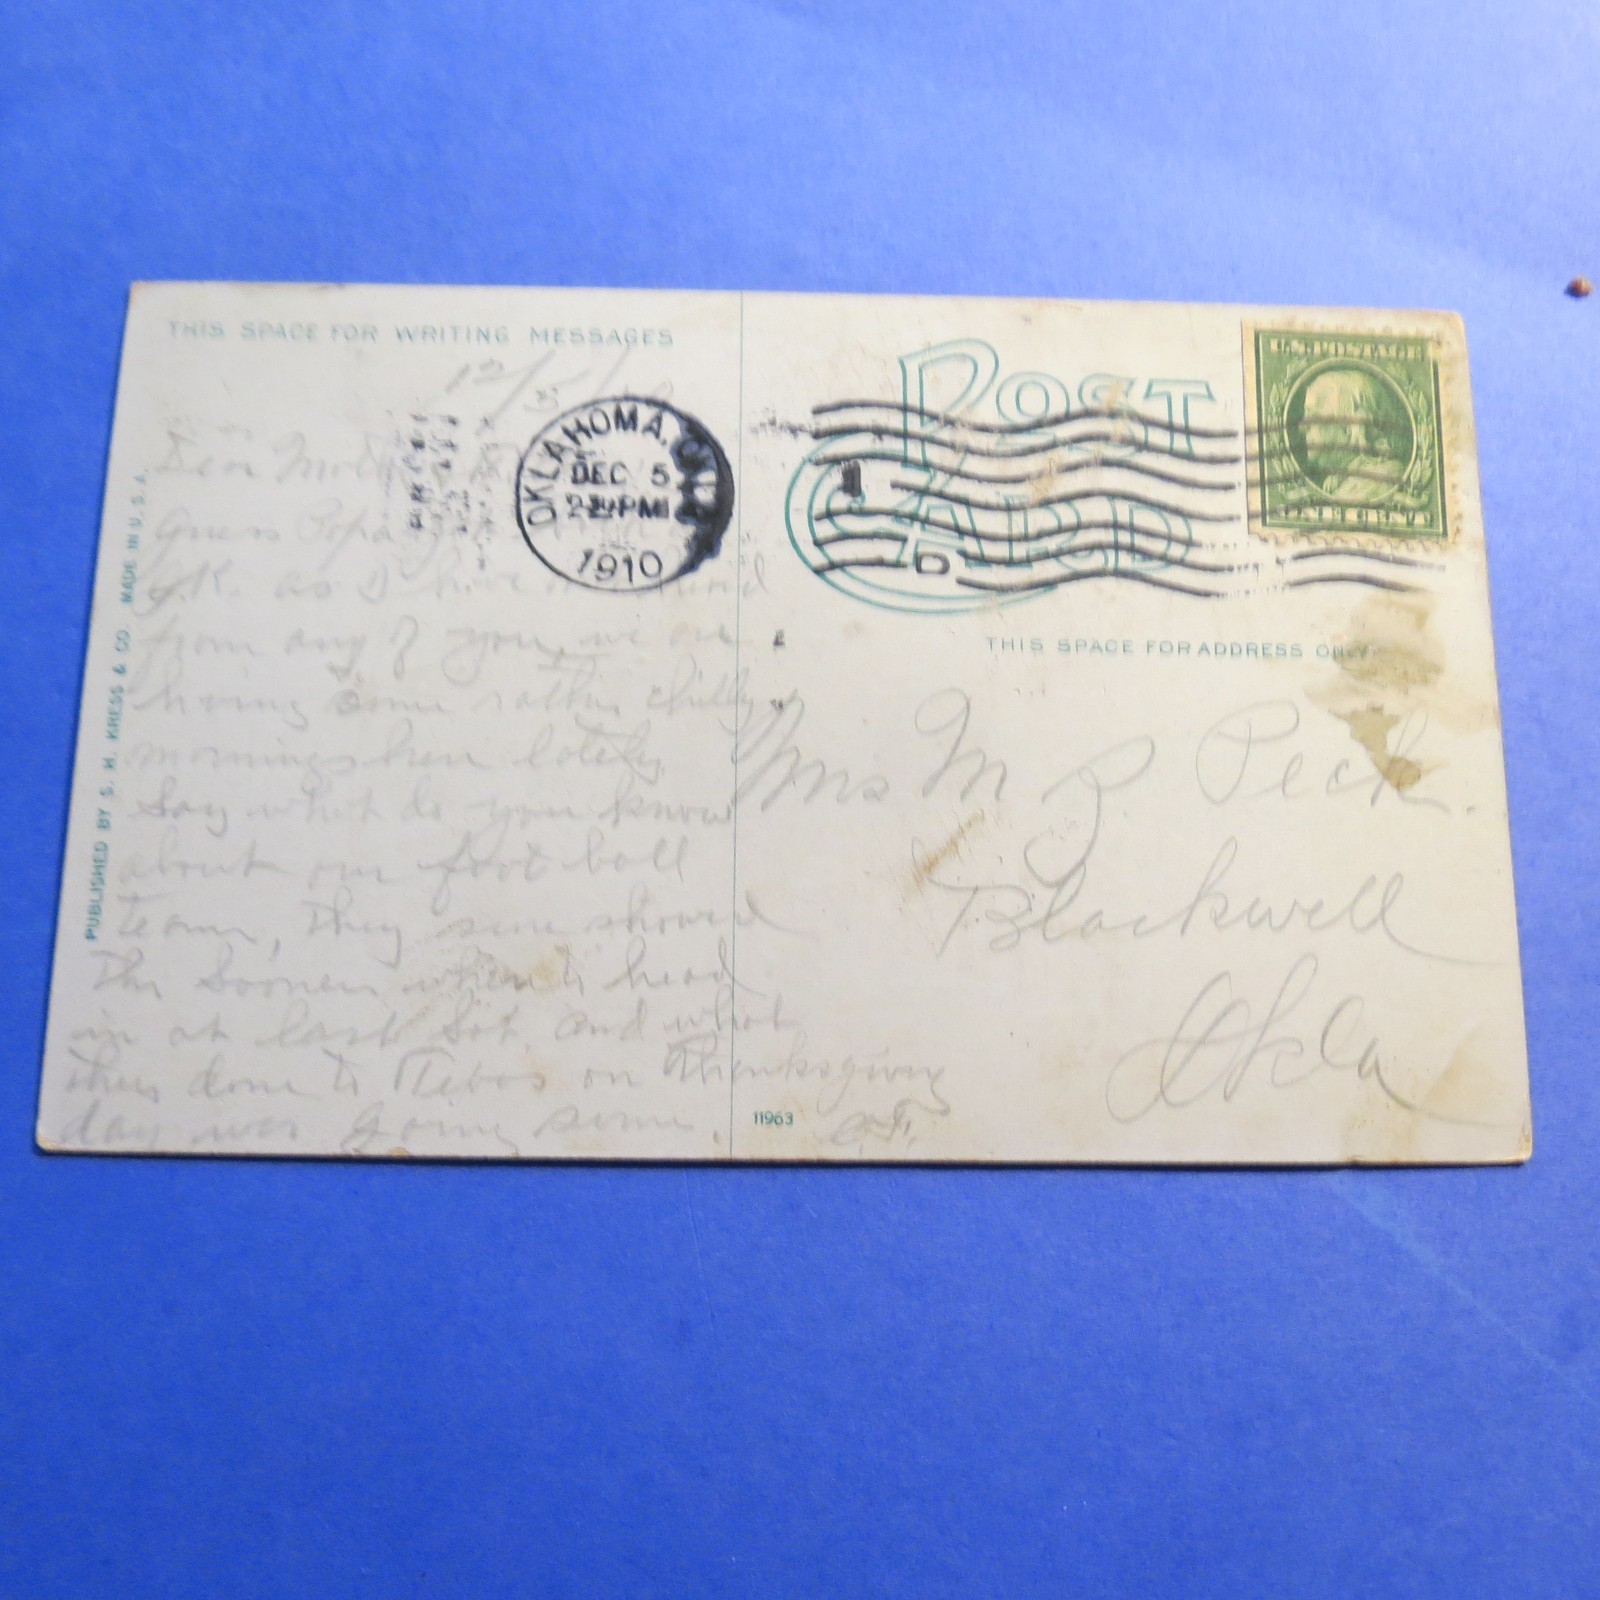 THIS SPACE FOR WRITING MESSAGES
12/5/
Dear Mother
Guess Papa
O.K. as I have
from any of you, we are
having some rather chilly
mornings here lately
Say what do you know
about our foot ball
team, They sure showed
the Sooners where to head
in at last Sat. and what
they done to Texas on Thanksgiving
day was going some.
PUBLISHED BY S. H. KRESS & CO. MADE IN U.S.A.
OKLAHOMA, OKLA.
DEC 5
2 PM
1910
POST CARD
D
U.S. POSTAGE
ONE CENT
THIS SPACE FOR ADDRESS ONLY
Mrs M Peck.
Blackwell
Okla
11963